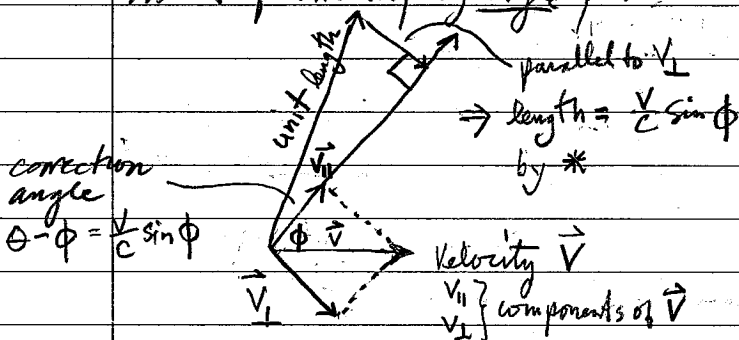 unit length
parallel to V⊥
⇒ length = v/c sin ϕ
by *
V∥
correction
angle
θ - ϕ = v/c sin ϕ
ϕ V⃗
Velocity V⃗
V⃗⊥
V∥
V⊥ } components of V⃗